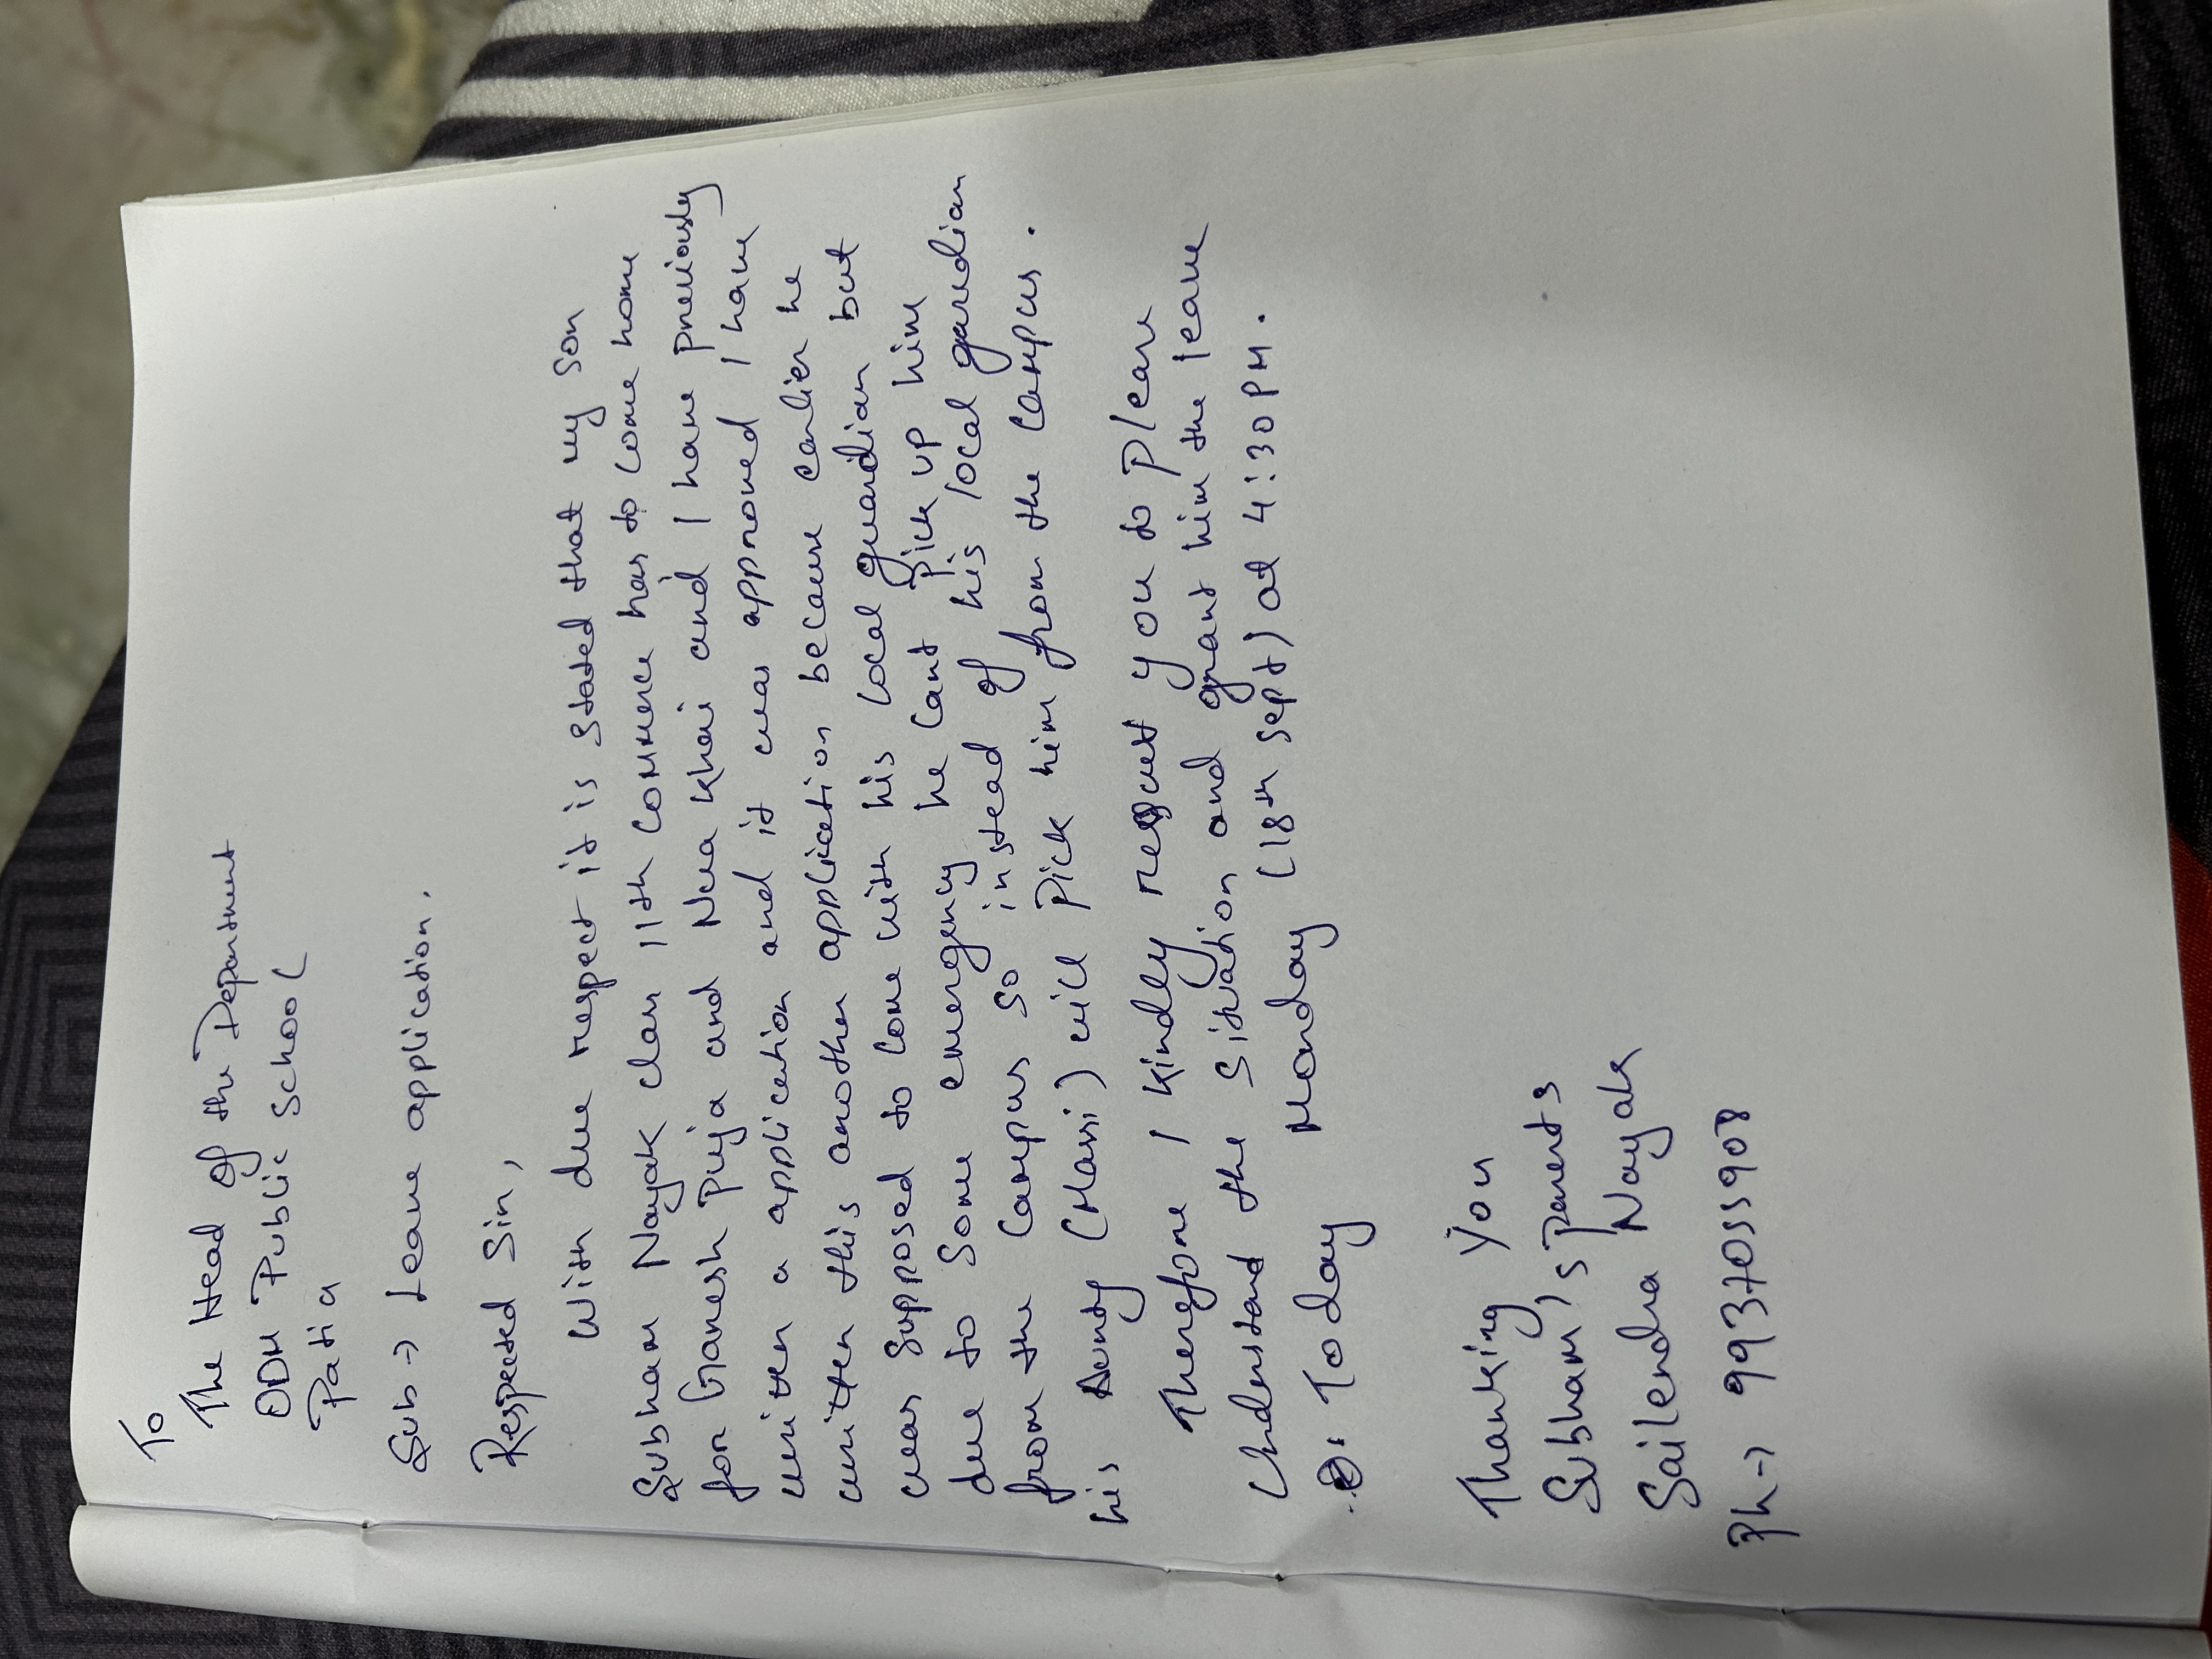 To
The Head of the Department
ODM Public School
Patia
Sub → Leave application.
Respected Sir,
With due respect it is stated that my son
Subham Nayak class 11th commerce has to come home
for Ganesh Puja and Nua khai and I have previously
written a application and it was approved I have
written this another application because earlier he
was supposed to come with his local guardian but
due to some emergency he cant pick up him
from the campus so instead of his local garudian
his Aunty (Mami) will pick him from the campus.
Therefore I kindly request you to please
Understand the situation and grant him the leave
Today Monday (18th sept) at 4:30PM.
Thanking You
Subham's parents
Sailendra Nayak
Ph → 9937055908